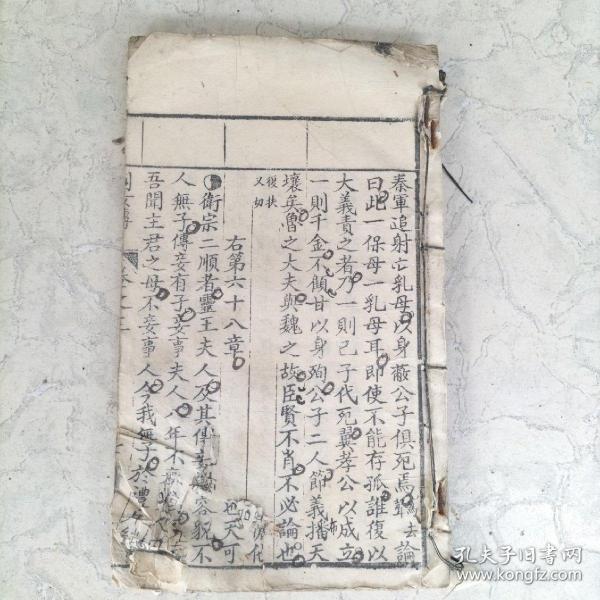 秦軍追射亡乳母以身蔽公子俱死焉 去論
曰此一保母一乳母耳即使不能存孤誰復以
大義責之者乃一則已子代死冀孝公以成立
一則千金不顧甘以身殉公子二人節義播天
壤矣魯之大夫與魏之故臣賢不肖不必論也
復扶
又切
右第六十八章
衛宗二順者靈王夫人及其傅妾 容貌不
人無子傅妾有子妾事夫人八年不
吾聞主君之母不妾事人今我無子於禮
也天可
代
孔夫子旧书网
www.kongfz.com